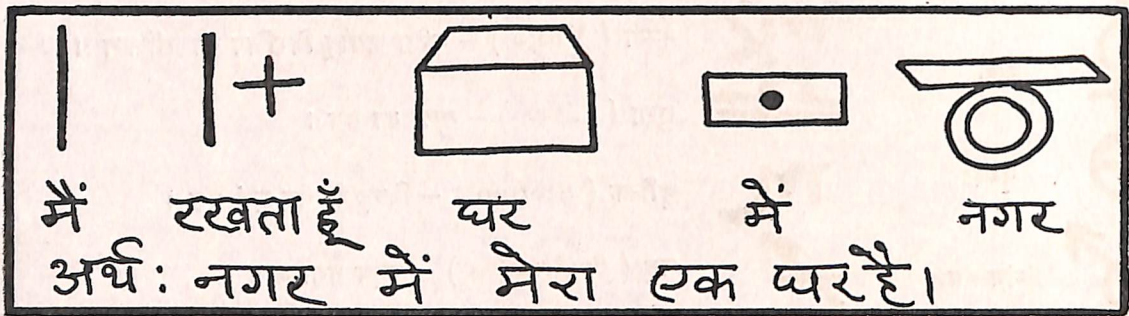 मैं रखता हूँ घर में नगर
अर्थ: नगर में मेरा एक घर है।